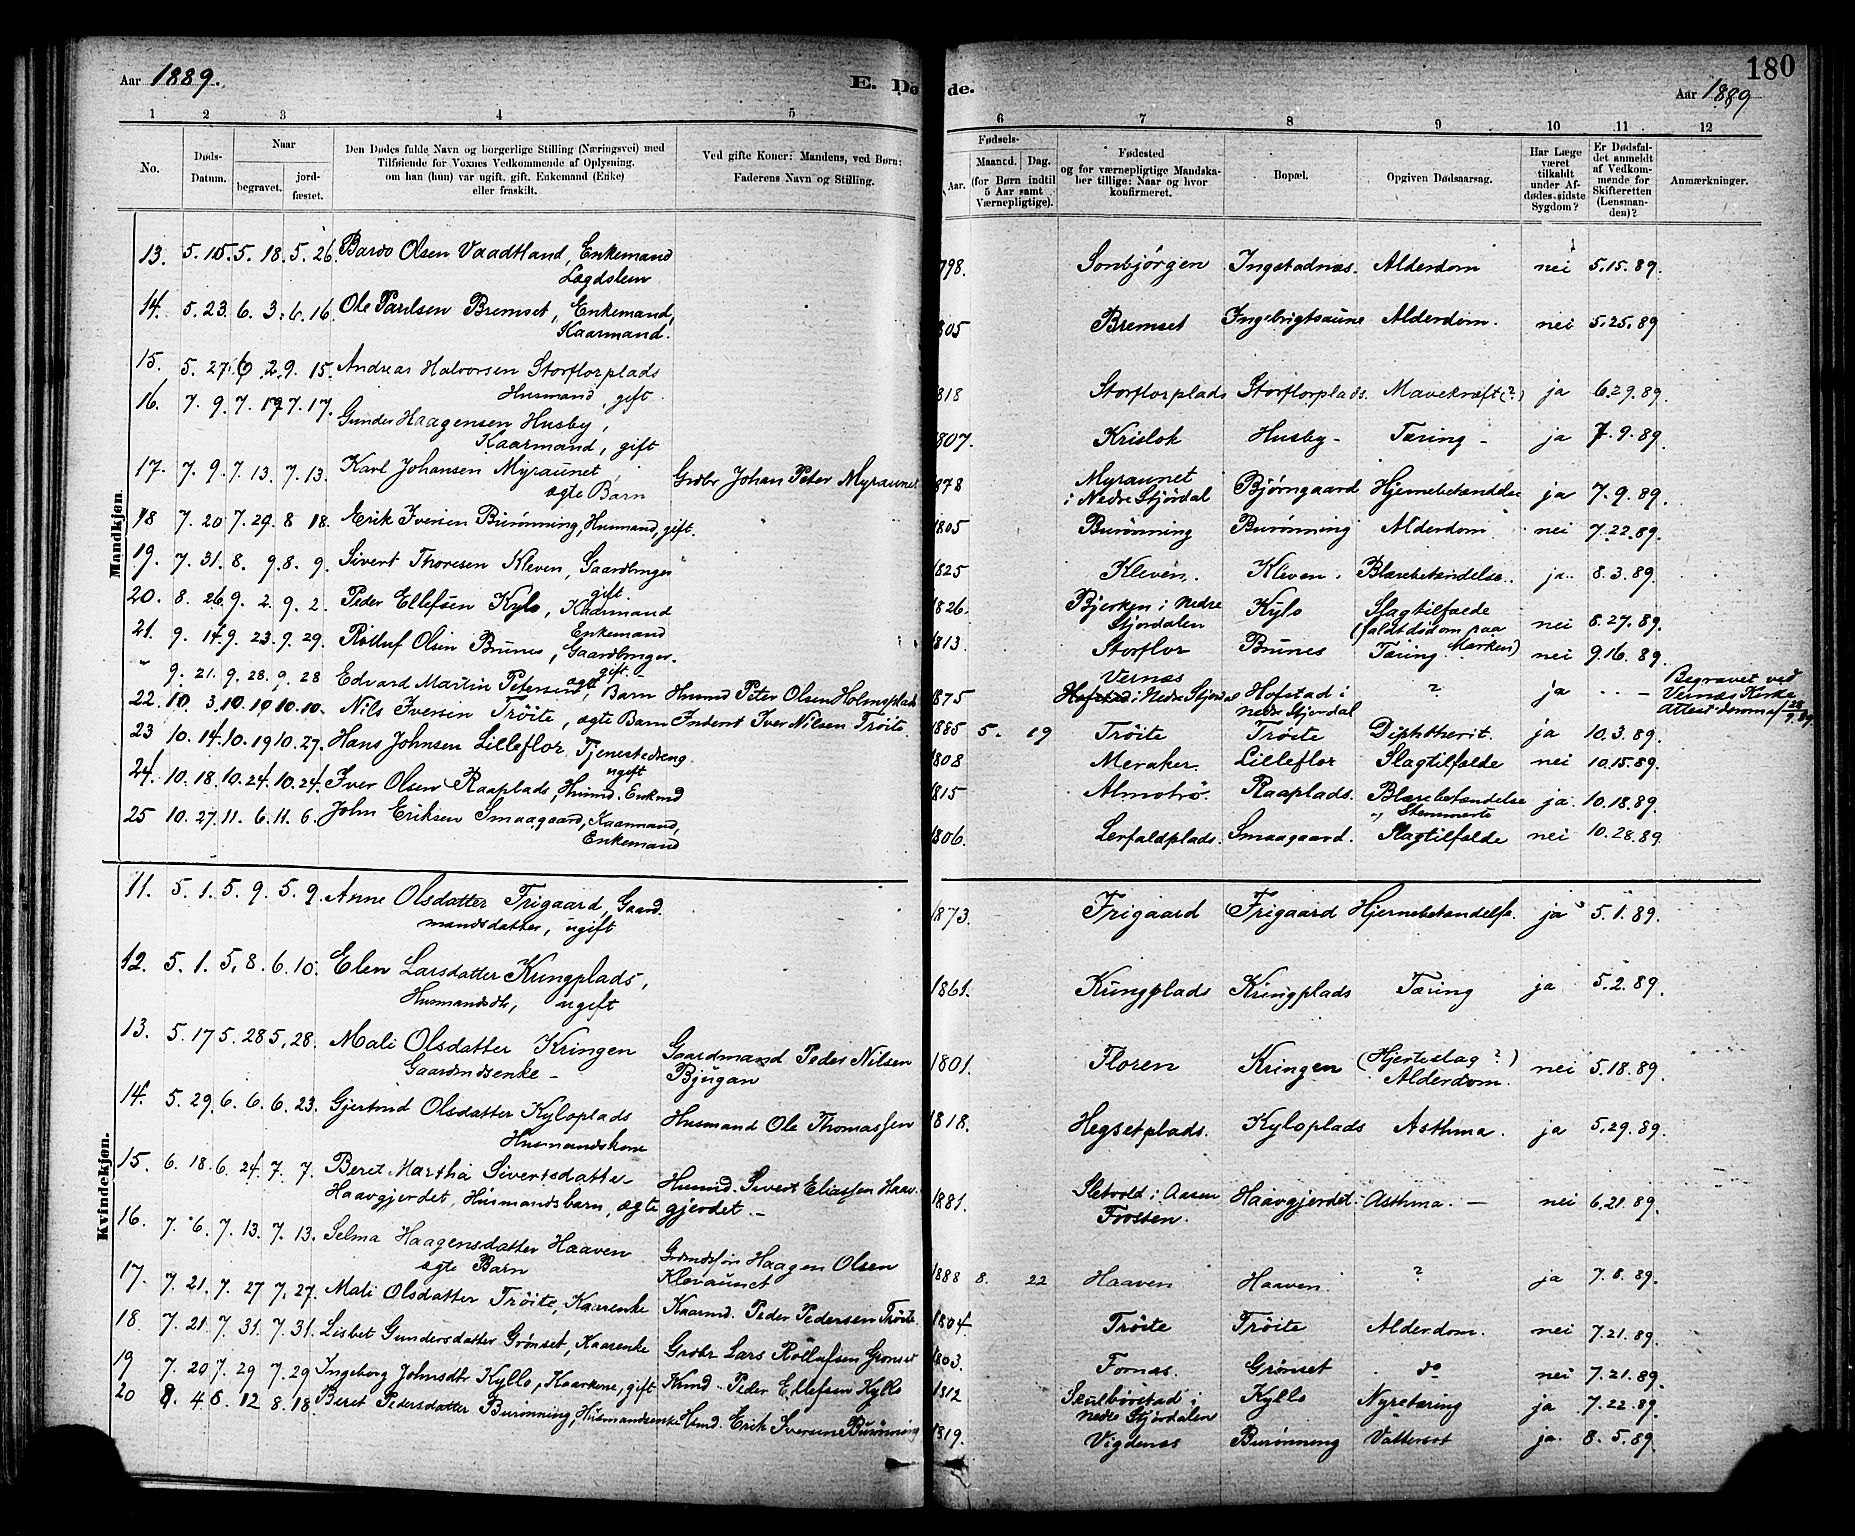 Aar 1889.
E. Dø
de.
180
Aar 1889
1 2 3 4 5
6 7 8 9 10 11 12
No.
Døds-
Datum.
Naar
begravet.
jord-
fæstet.
Den Dødes fulde Navn og borgerlige Stilling (Næringsvei) med
Tilføiende for Voxnes Vedkommende af Oplysning,
om han (hun) var ugift, gift, Enkemand (Enke)
eller fraskilt.
Ved gifte Koner: Mandens, ved Børn:
Faderens Navn og Stilling.
Fødsels-
Aar.
Maaned. Dag.
(for Børn indtil
5 Aar samt
Værnepligtige).
Fødested
og for værnepligtige Mandska-
ber tillige: Naar og hvor
konfirmeret.
Bopæl.
Opgiven Dødsaarsag.
Har Læge
været
tilkaldt
under Af-
dødes sidste
Sygdom?
Er Dødsfal-
det anmeldt
af Vedkom-
mende for
Skifteretten
(Lensman-
den)?
Anmærkninger.
Mandkjøn.
13. 5. 15. 5. 18. 5. 26. Bardo Olsen Vaadtland, Enkemand
Lægdslem 798. Sonbjørgen Ingstadnæs. Alderdom nei 5.15.89.
14. 5. 23. 6. 3. 6. 16. Ole Paulsen Bremset, Enkemand,
Kaarmand. 805 Bremset Ingebrigtsaune Alderdom. nei 5.25.89
15. 5. 27. 6. 2. 9. 15. Andreas Halvorsen Storflorplads
Husmand, gift 818 Storflorplads Storflorplads. Mavekræft(?) ja 6.29.89.
16. 7. 9. 7. 17. 7. 17. Gunder Haagensen Husby,
Kaarmand, gift 1807. Krislok Husby - Tæring - ja 7.9.89.
17. 7. 9. 7. 13. 7. 13. Karl Johansen Myraunet
ægte Barn Grdbr Johan Peter Myraunet 1878 Myraunet
i Nedre Stjørdal Bjørngaard Hjernebetændelse ja 7.9.89.
18 7. 20 7. 29. 8 18. Erik Iversen Burønning, Husmand, gift. 1805 Burønning Burønning Alderdom nei 7.22.89.
19. 7. 31. 8. 9. 8. 9. Sivert Thoresen Kleven, Gaardbruger
gift. 1825 Kleven. Kleven. Blærebetændelse. ja. 8.3.89.
20. 8. 26. 9. 2. 9. 2. Peder Ellefsen Kylo, Kaarmand
Enkemand 1826. Bjerken i Nedre
Stjordalen Kylo Slagtilfælde
(faldt dødom paa
Marken) nei 8.27.89.
21. 9. 14. 9. 23. 9. 29. Rolluf Olsen Brunes, Gaardbruger.
gift. 1813 Storflor Brunes Tæring nei 9.16.89.
" 9. 21. 9. 28. 9. 28 Edvard Martin Petersen, ægte Barn Husmd Peter Olsen Holmsplads 1875 Vernæs
Hofstad i Nedre Stjørdal Hofstad i
nedre Stjørdal ? ja . . - Begravet ved
Vernæs Kirke
Attest derom af 28/9 89.
22. 10. 3. 10. 10 10. 10. Nils Iversen Tröite, ægte Barn Inderst Iver Nilsen Tröite 1885 5. 19 Tröite Tröite Diphtherit. ja 10.3.89.
23 10. 14. 10. 19 10. 27. Hans Johnsen Lilleflor Tjenestedreng
ugift 1808 Meraker. Lilleflor Slagtilfælde nei 10.15.89.
24. 10. 18. 10. 24. 10. 24. Iver Olsen Raaplads, Husmd. Enkmd 1815 Almotrø. Raaplads. Blærebetændelse ja. 10.18.89.
25 10. 27. 11. 6. 11. 6. John Eriksen Smaagaard, Kaarmand,
Enkemand 1806. Lerfaldplads. Smaagaard. Slagtilfælde nei 10.28.89
Kvindekjøn.
11. 5. 1. 5. 9. 5. 9. Anne Olsdatter Frigaard, Gaard-
mandsdatter, ugift 1873. Frigaard Frigaard Hjernebetændelse. ja 5.1.89.
12. 5. 1. 5. 8. 6. 10. Elen Larsdatter Kringplads,
Husmandsdtr, ugift 1861. Kringplads Kringplads Tæring ja 5.2.89.
13. 5. 17 5. 28 5. 28. Mali Olsdatter Kringen
Gaardmdsenke - Gaardmand Peder Nilsen
Bjugan 1801. Floren Kringen (Hjerteslag ?)
Alderdom. nei 5.18.89.
14. 5. 29. 6. 6. 6. 23. Gjertrud Olsdatter Kyloplads
Husmandskone Husmand Ole Thomassen 1818. Hegsetplads. Kyloplads Asthma. ja 5.29.89.
15. 6. 18. 6. 24. 7. 7. Beret Martha Sivertsdatter
Haavgjerdet, Husmandsbarn, ægte Husmd. Sivert Eliassen Haav-
gjerdet. - 1881. Sletvold i Aasen
Frosten. Haavgjerdet. Asthma. - nei 6.21.89.
16. 7. 6. 7. 13. 7. 13. Selma Haagensdatter Haaven
ægte Barn Grdmdssøn Haagen Olsen
Klevaunet 1888 8. 22 Haaven Haaven ? ja 7.8.89.
17. 7. 21. 7. 27 7. 27. Mali Olsdatter Tröite, Kaarenke Kaarmd. Peder Pedersen Tröite 1804. Tröite Tröite Alderdom. nei 7.21.89.
18. 7. 21. 7. 31. 7. 31. Lisbet Gundersdatter Grønset, Kaarenke Grdbr Lars Rollafsen Grønset 1803. Fornæs. Grønset do nei 7.21.89.
19 7. 20 7. 29 7. 29 Ingeborg Johnsdtr Kyllo, Kaarkone, gift Krmd. Peder Ellefsen Kyllo 1812 Skulbörstad i
nedre Stjørdalen Kyllo Nyretæring ja 7.22.89.
20 8. 4 8. 12 8. 18. Beret Pedersdatter Burønning, Husmandsenke Hsmd. Erik Iversen Burønning 1819. Vigdenæs Burønning Vattersot ja. 8.5.89.